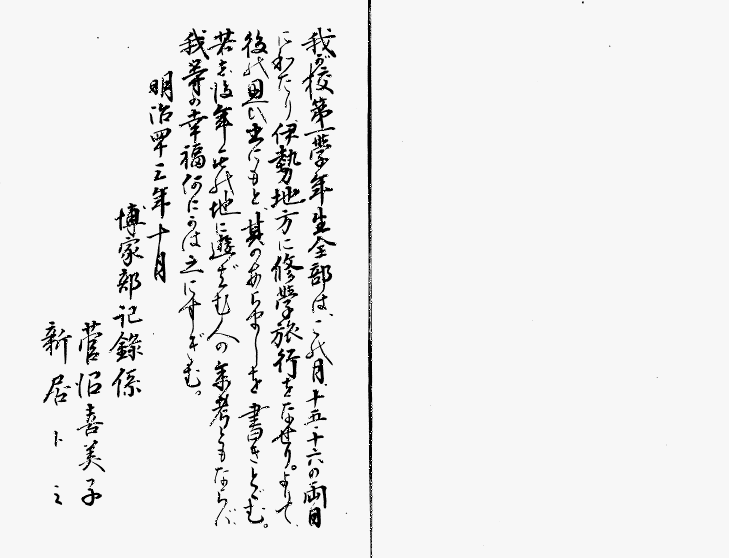 我が校第一學年生全部は、この月、十五・十六の両日
にわたり、伊勢地方に修學旅行をなせり。よりて、
後の思ひ出にもと、其のあらましを書きとゞむ。
若し後年この地に遊ばむ人の参考ともならば、
我等の幸福何にかは之にすぎむ。
明治四十三年十月
博家部記錄係
菅沼喜美子
新居トミ